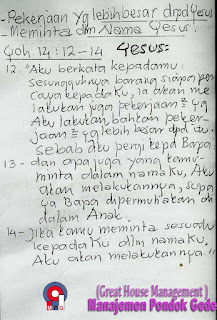 - Pekerjaan yg lebih besar dpd Yesus
- Meminta dlm Nama Yesus.
Yoh. 14 : 12 - 14 Yesus:
12. "Aku berkata kepadamu:
sesungguhnya barang siapa per-
caya kepadaKu, ia akan me
lakukan juga pekerjaan² yg
Aku lakukan, bahkan peker-
jaan² yg lebih besar dpd itu.
Sebab aku pergi kepd Bapa;
13 - dan apa juga yang kamu
minta dalam namaKu, Aku
akan melakukannya, supa
ya Bapa dipermuliakan
dalam Anak.
14 - Jika kamu meminta sesuatu
kepadaKu dlm namaKu,
Aku akan melakukannya."
(Great House Management )
Manajemen Pondok Gede